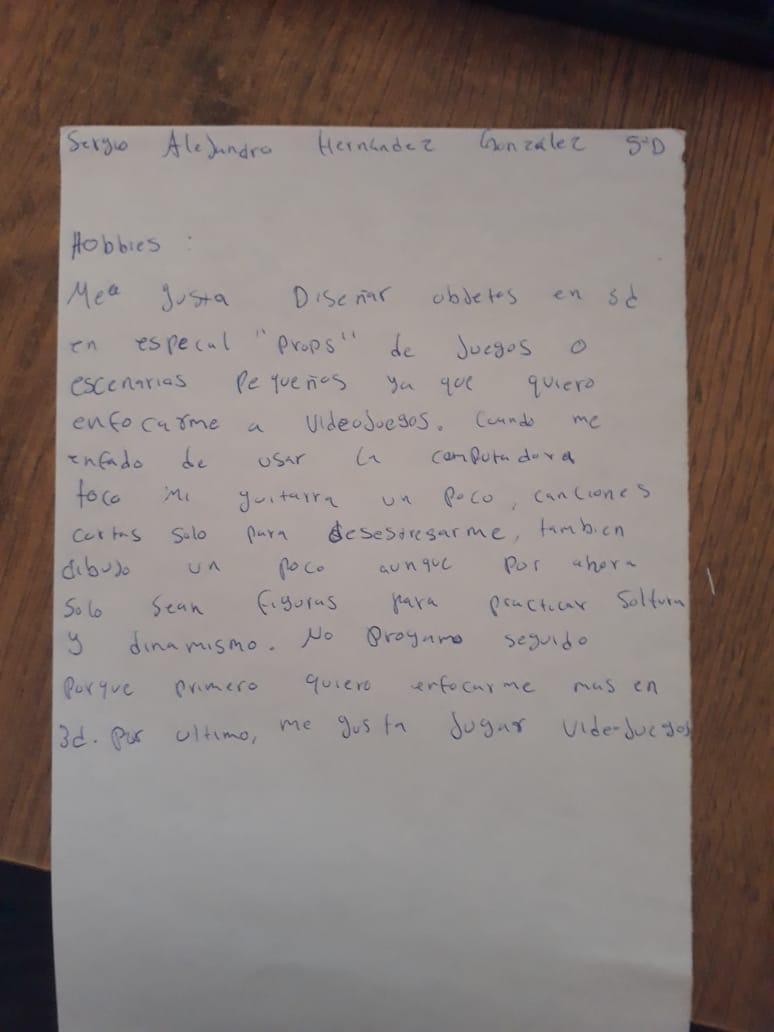 Sergio Alejandro Hernández González 5°D
Hobbies :
Me gusta Diseñar objetos en 3d
en especial "props" de juegos o
escenarios pequeños ya que quiero
enfocarme a videojuegos. Cuando me
enfado de usar la computadora
toco mi guitarra un poco, canciones
cortas solo para desestresarme, tambien
dibujo un poco aunque por ahora
solo sean figuras para practicar soltura
y dinamismo. No programo seguido
porque primero quiero enfocarme mas en
3d. Por ultimo, me gusta jugar videojuegos